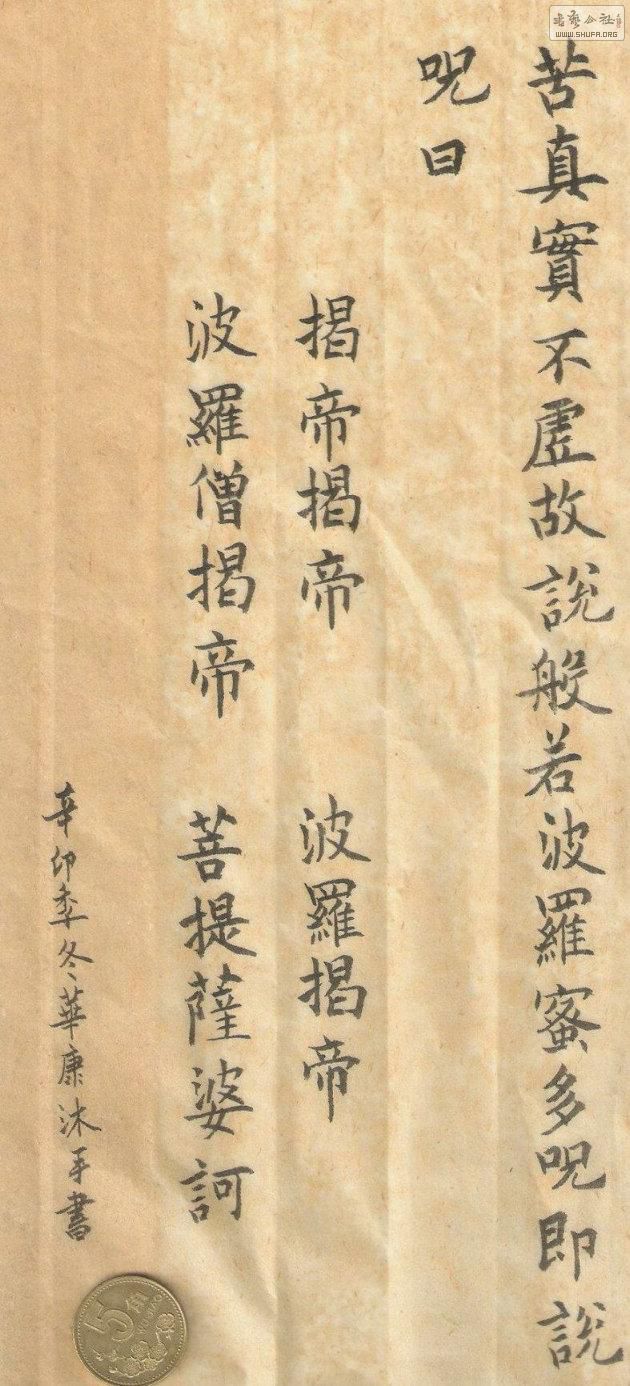 苦真實不虛故說般若波羅蜜多呪即說
呪曰
揭帝揭帝 波羅揭帝
波羅僧揭帝 菩提薩婆訶
辛卯季冬華康沐手書
5角
WWW.SHUFA.ORG